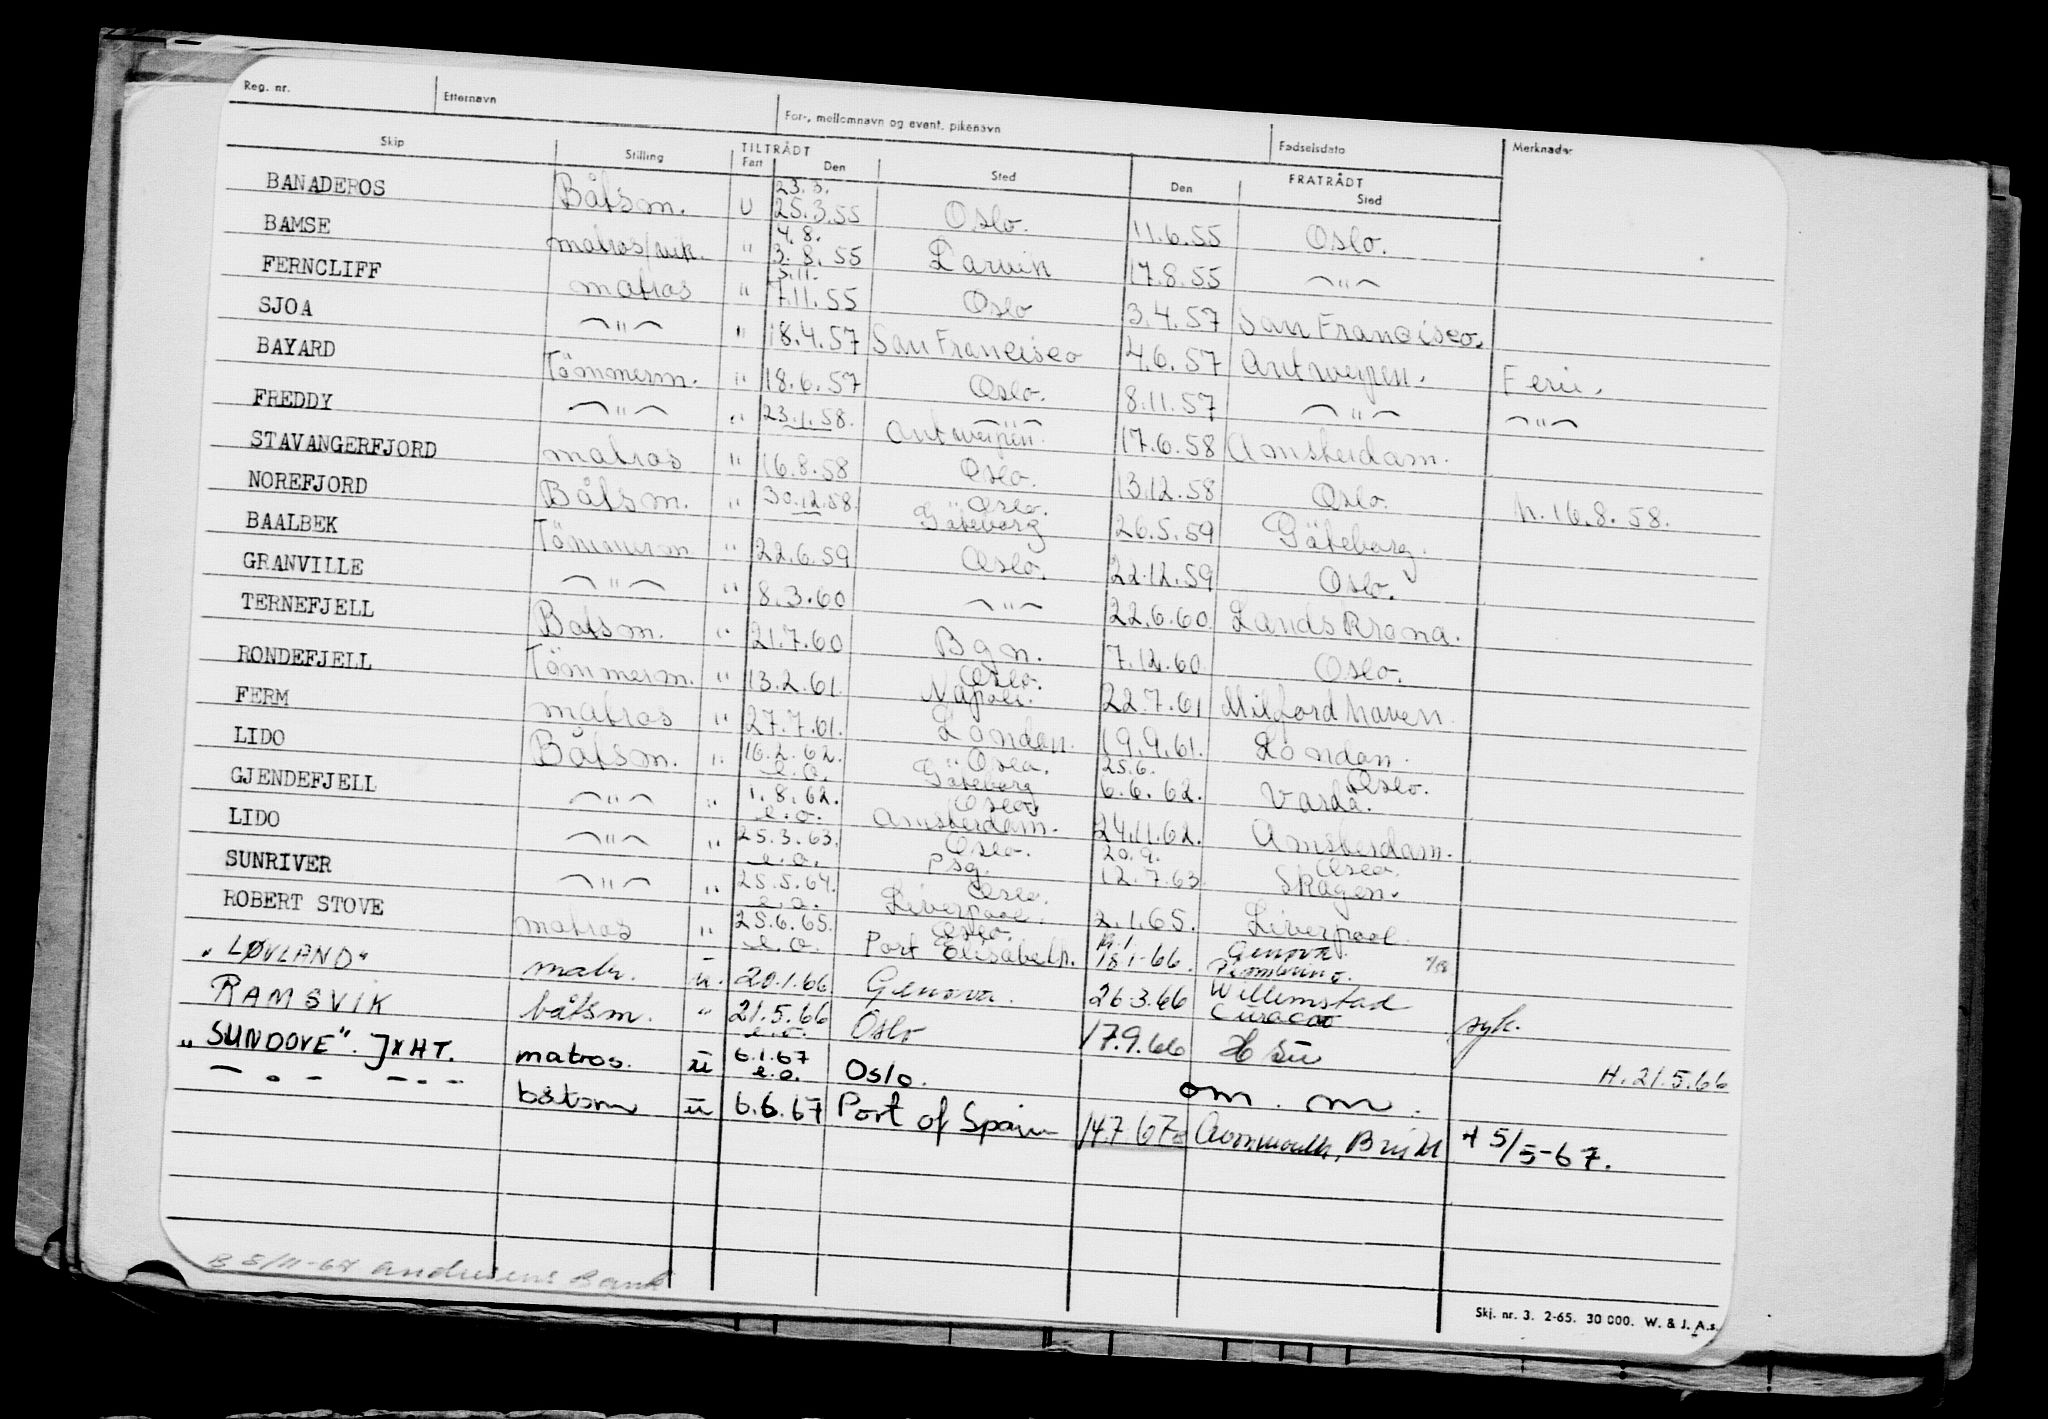 Reg. nr. Etternavn For-, mellomnavn og event. pikenavn Fødselsdato Merknader
Skip Stilling TILTRÅDT Fart Den Sted Den FRATRÅDT Sted
BANADEROS Båtsm. U 23.3. 25.3.55 Oslo. 11.6.55 Oslo.
BAMSE matros/ " 4.8. 3.8.55 Larvik 17.8.55 — " —
FERNCLIFF matros " 5.11. 7.11.55 Oslo 3.4.57 San Francisco.
SJOA — " — " 18.4.57 San Francisco 4.6.57 Antwerpen. Ferie.
BAYARD Tömmerm. " 18.6.57 Oslo. 8.11.57 — " — — " —
FREDDY — " — " 23.1.58. — " — Antwerpen. 17.6.58 Amsterdam.
STAVANGERFJORD matros " 16.8.58 Oslo. 13.12.58 Oslo. h. 16.8.58.
NOREFJORD Båtsm. " 30.12.58. Oslo. Göteborg 26.5.59 Göteborg.
BAALBEK Tömmerm " 22.6.59 Oslo. 22.12.59 Oslo.
GRANVILLE — " — " 8.3.60 — " — 22.6.60. Landskrona.
TERNEFJELL Båtsm. " 21.7.60 Bgn. 7.12.60. Oslo.
RONDEFJELL Tömmerm. " 13.2.61. Oslo. Napoli. 22.7.61 Milford haven.
FERM matros " 27.7.61. London. 19.9.61. London.
LIDO Båtsm. " 16.2.62. e.o. Oslo. Göteborg 25.6. 6.6.62. Oslo. Vardö.
GJENDEFJELL — " — " 1.8.62. e.o. Oslo Amsterdam. 24.11.62. Amsterdam.
LIDO — " — " 25.3.63. e.o. Oslo. Psg. 20.9. 12.7.63. Oslo. Skagen.
SUNRIVER — " — " 25.5.64. e.o. Oslo. Liverpool. 2.1.65. Liverpool.
ROBERT STOVE matros " 25.6.65. e.o. Oslo. Port Elisabeth. 18.1-66. Genova. Piombino.
"LØVLAND" matr. u. 20.1.66 Genova. 26.3.66 Willemstad Curacao syk.
RAMSVIK båtsm. " 21.5.66 e.o. Oslo 17.9.66 H.21.5.66
"SUNDOVE". JXHT. matros. u 6.1.67 e.o. Oslo. om. m.
— " — — " — båtsm u 6.6.67 Port of Spain 14.7.67 Avonmouth, + 5/5-67.
B 8/11-67 Andresens Bank
Skj. nr. 3. 2-65. 30 000. W. & J. A.s.